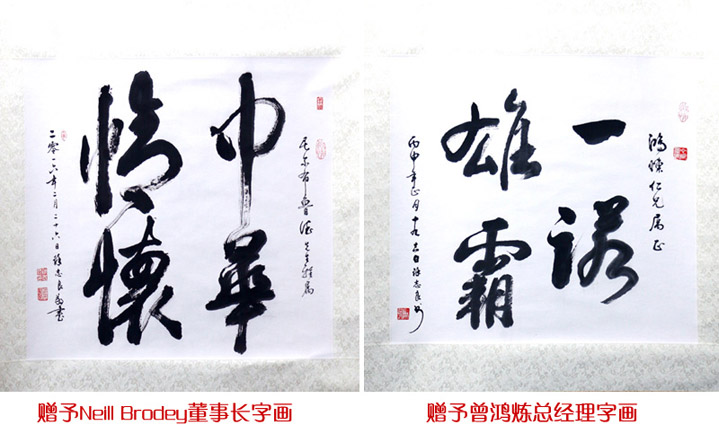 尼尔布鲁德先生雅属
中華
情懷
二零一六年二月二十六日
鸿煉仁兄属正
一诺
雄霸
丙申年正月十九吉日
赠予Neill Brodey董事长字画
赠予曾鸿炼总经理字画